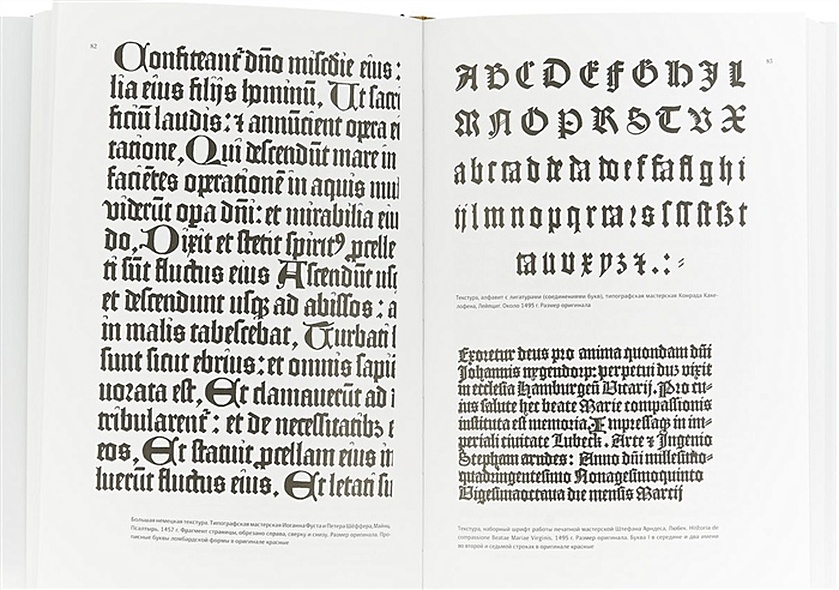 82
Confiteant᷑ dño misc̄die eius:
lia eius filijs hominū, Ut sacri
ficiū laudis: ⁊ annūcient opera ei
tatione, Qui descendūt mare in
faciētes operationē in aquis mul
viderūt opa dñi: et mirabilia eiu
do, Dixit et stetit spiritꝰ ꝓcelle
ti sūt fluctus eius Ascendūt usq
et descendunt usqꝫ ad abissos: a
in malis tabescebat, Turbati
sunt sicut ebrius: et omnis sapi
uorata est, Et clamauerūt ad
tribularent᷑: et de necessitatibꝫ e
eos, Et statuit ꝓcellam eius in
luerūt fluctus eius. Et letati su
Большая немецкая текстура. Типографская мастерская Иоганна Фуста и Петера Шёффера, Майнц.
Псалтырь, 1457 г. Фрагмент страницы, обрезано справа, сверху и снизу. Размер оригинала. Про-
писные буквы ломбардской формы в оригинале красные
83
A B C D E F G H J L
M N O P R S T V X
Текстура, алфавит с лигатурами (соединениями букв), типографская мастерская Конрада Каке-
лофена, Лейпциг. Около 1495 г. Размер оригинала
Exoretur deus pro anima quondam dñi
Johannis nygendorp: perpetui duꝫ vixit
in ecclesia Hamburgeñ Vicarij. Pro cu-
ius salute hec beate Marie compassionis
instituta est memoria. Impressaqꝫ in im-
periali ciuitate Lubeck. Arte ⁊ Ingenio
Stephani arndes: Anno dñi millesimo-
quadringentesimo Nonagesimoquinto
Vigesimaoctaua die mensis Marcij
Текстура, наборный шрифт работы печатной мастерской Штефана Арндеса, Любек. Historia de
compassione Beatae Mariae Virginis, 1495 г. Размер оригинала. Буква I в середине и два имени
во второй и седьмой строках в оригинале красные